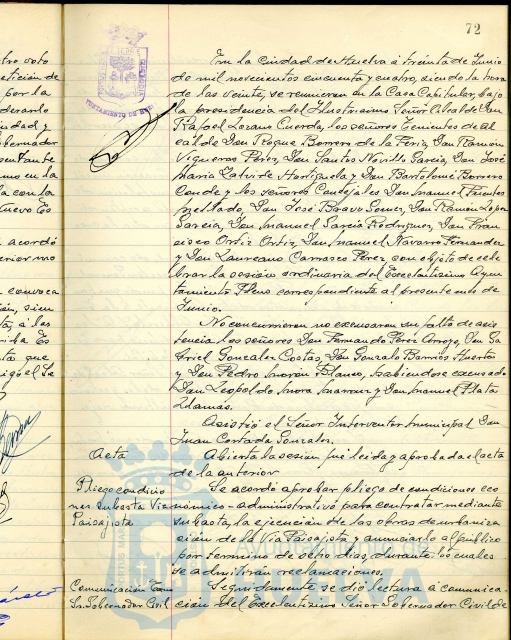 72
En la Ciudad de Huelva a treinta de Junio
de mil novecientos cincuenta y cuatro, siendo la hora
de las veinte, se reunieron en la Casa Capitular, bajo
la presidencia del Ilustrisimo Señor Alcalde Don
Rafael Lozano Cuerda, los señores Tenientes de Al
calde Don Roque Borrero de la Feria, Don Ramon
Vigueras Pérez, Don Santos Novillo Garcia, Don José
Maria Zalvide Hortiguela y Don Bartolomé Borrero
Conde y los señores Concejales Don Manuel Fuentes
Mellado, Don José Bravo Gomez, Don Ramón Lopez
Garcia, Don Manuel Garcia Rodriguez, Don Fran
cisco Ortiz Ortiz, Don Manuel Navarro Fernandez
y Don Laureano Carrasco Pérez, con objeto de cele
brar la sesión ordinaria del Excelentisimo Ayun
tamiento Pleno correspondiente al presente mes de
Junio.
No concurrieron ni excusaron su falta de asis
tencia los señores Don Fernando Perez Arroyo, Don Ga
briel Gonzalez Costas, Don Gonzalo Barrios Huertas
y Don Pedro Moron Blanco, habiendose excusado
Don Leopoldo Mora y Don Manuel Plata
Llamas.
Asistió el Señor Interventor Municipal Don
Juan Cortada Gonzalez.
Acta
Abierta la sesión fué leida y aprobada el acta
de la anterior
Pliego condicio
nes Subasta Via
Paisajista
Se acordó aprobar pliego de condiciones eco
nómico-administrativo para contratar mediante
subasta, la ejecución de las obras de urbaniza
ción de la Via Paisajista y anunciarlo al público
por termino de ocho dias, durante los cuales
se admitiran reclamaciones.
Comunicación
Sr. Gobernador Civil
Seguidamente se dió lectura a comunica
ción del Excelentisimo Señor Gobernador Civil de